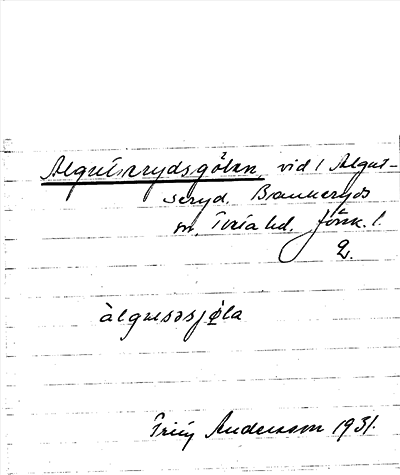 Algutsrydsgölen, vid! Algut-
seryd. Bankeryds
sn. Tveta hd. Jönk. l.
2.
àlgusəsjøla
Friy Andersson 1931.